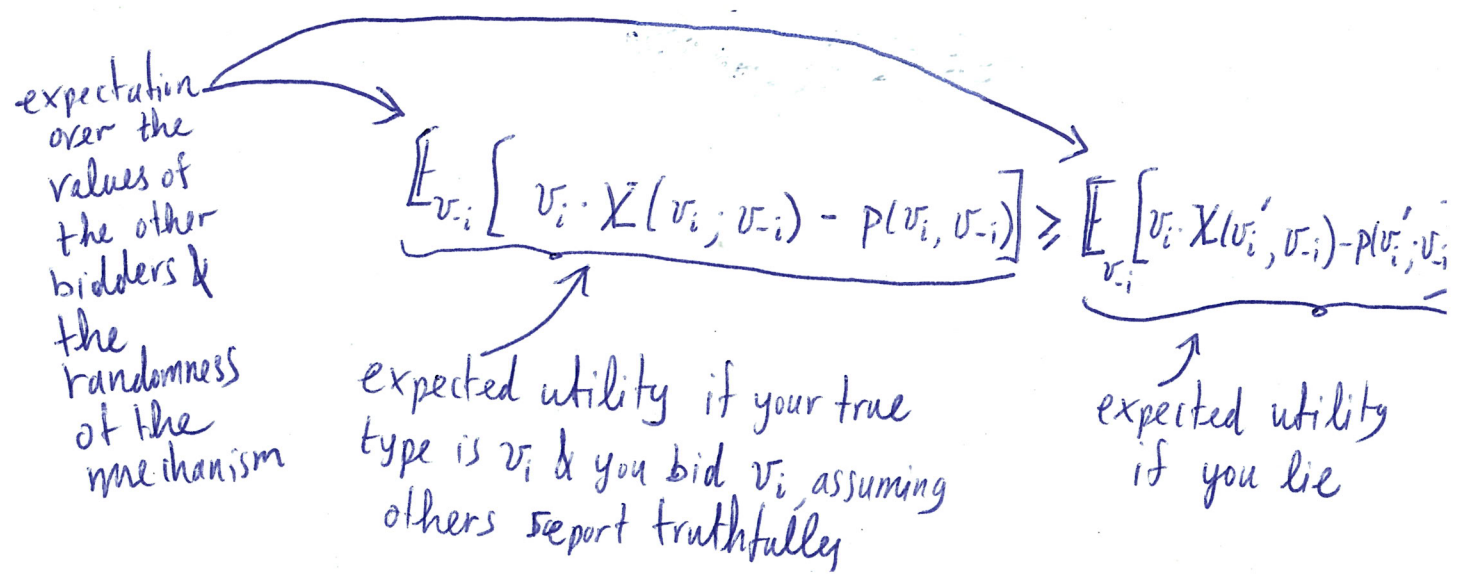 expectation
over the
values of
the other
bidders &
the
randomness
of the
mechanism
𝔼_{v_{-i}} [ v_i · X(v_i ; v_{-i}) - p(v_i, v_{-i}) ] ≥ 𝔼_{v_{-i}} [ v_i · X(v_i', v_{-i}) - p(v_i' ; v_{-i}
expected utility if your true
type is v_i & you bid v_i, assuming
others report truthfully
expected utility
if you lie